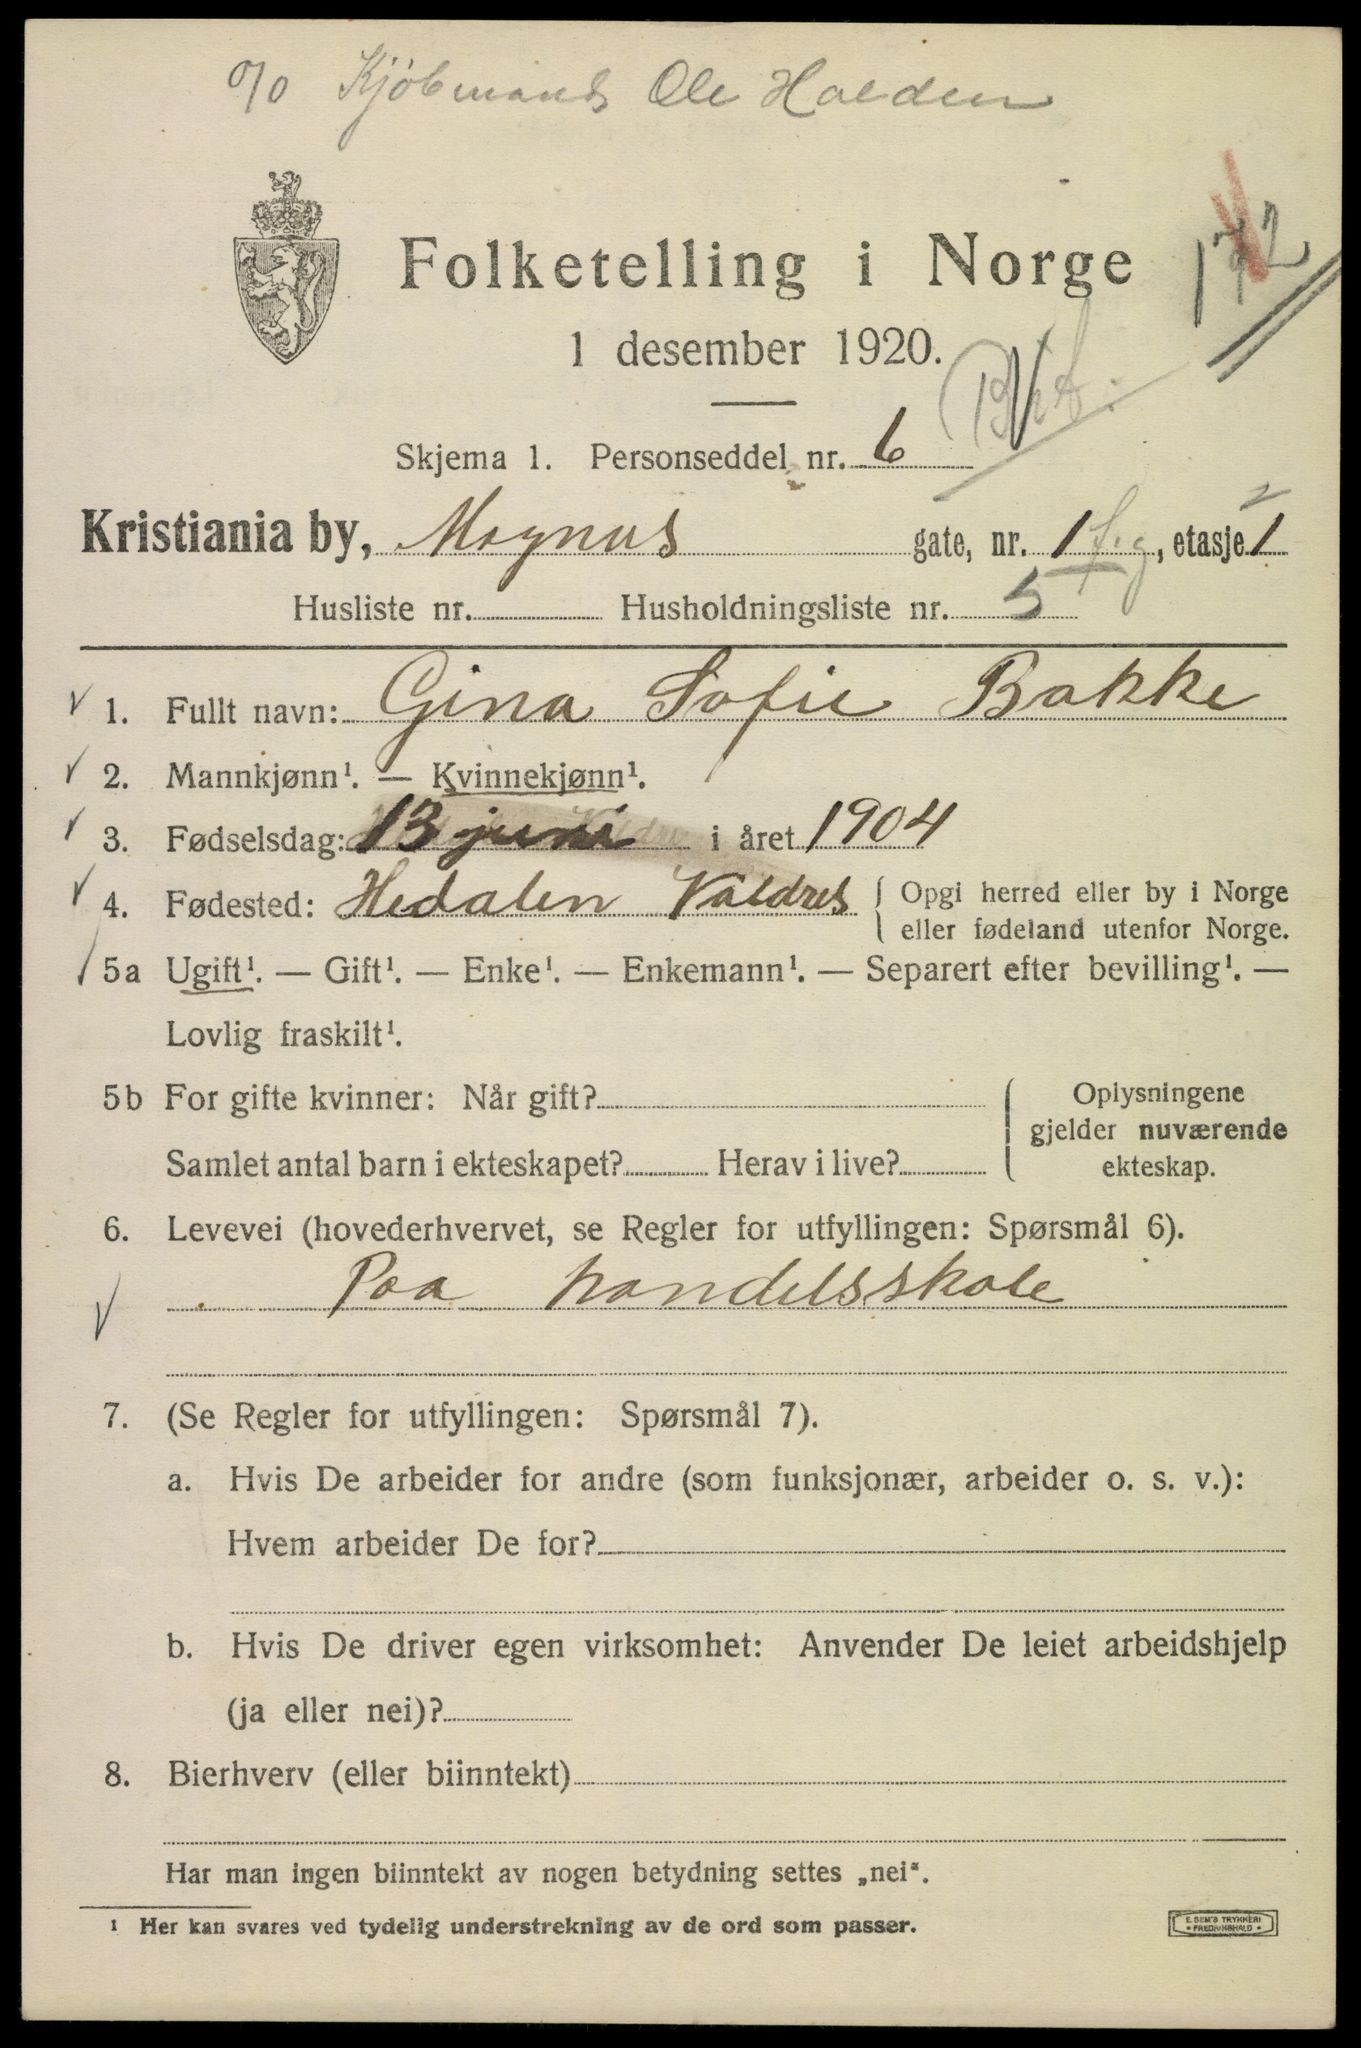 o/o Kjøbmands Ole Halden
Folketelling i Norge
172
1 desember 1920.
Skjema 1. Personseddel nr. 6
Kristiania by, Magnus gate, nr. 1, etasje 1
2
Husliste nr. Husholdningsliste nr. 5
1. Fullt navn: Gina Sofie Bakke
2. Mannkjønn¹. — Kvinnekjønn¹.
3. Fødselsdag: 13 juni i året 1904
4. Fødested: Hedalen Valdres { Opgi herred eller by i Norge
eller fødeland utenfor Norge.
5a Ugift¹. — Gift¹. — Enke¹. — Enkemann¹. — Separert efter bevilling¹. —
Lovlig fraskilt¹.
5b For gifte kvinner: Når gift?
Samlet antal barn i ekteskapet? Herav i live?
Oplysningene
gjelder nuværende
ekteskap.
6. Levevei (hovederhvervet, se Regler for utfyllingen: Spørsmål 6).
Paa handelsskole
7. (Se Regler for utfyllingen: Spørsmål 7).
a. Hvis De arbeider for andre (som funksjonær, arbeider o. s. v.):
Hvem arbeider De for?
b. Hvis De driver egen virksomhet: Anvender De leiet arbeidshjelp
(ja eller nei)?
8. Bierhverv (eller biinntekt)
Har man ingen biinntekt av nogen betydning settes „nei“.
¹ Her kan svares ved tydelig understrekning av de ord som passer.
E. SEM'S TRYKKERI
FREDRIKSHALD